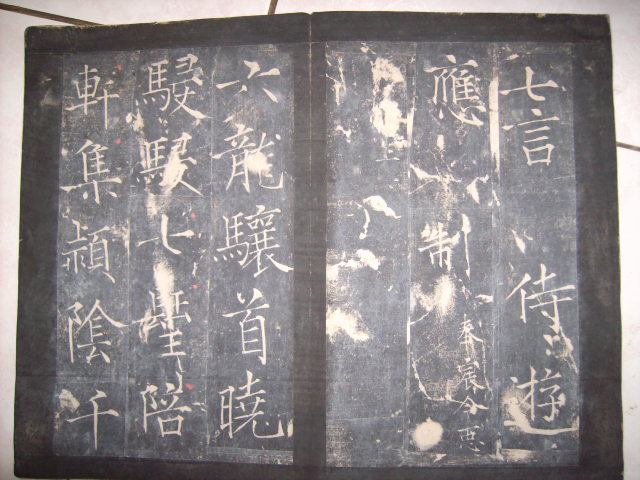 七言 侍遊
應制 奉宸令𢘑
上
六龍驤首曉
駸駸七聖陪
軒集潁陰千